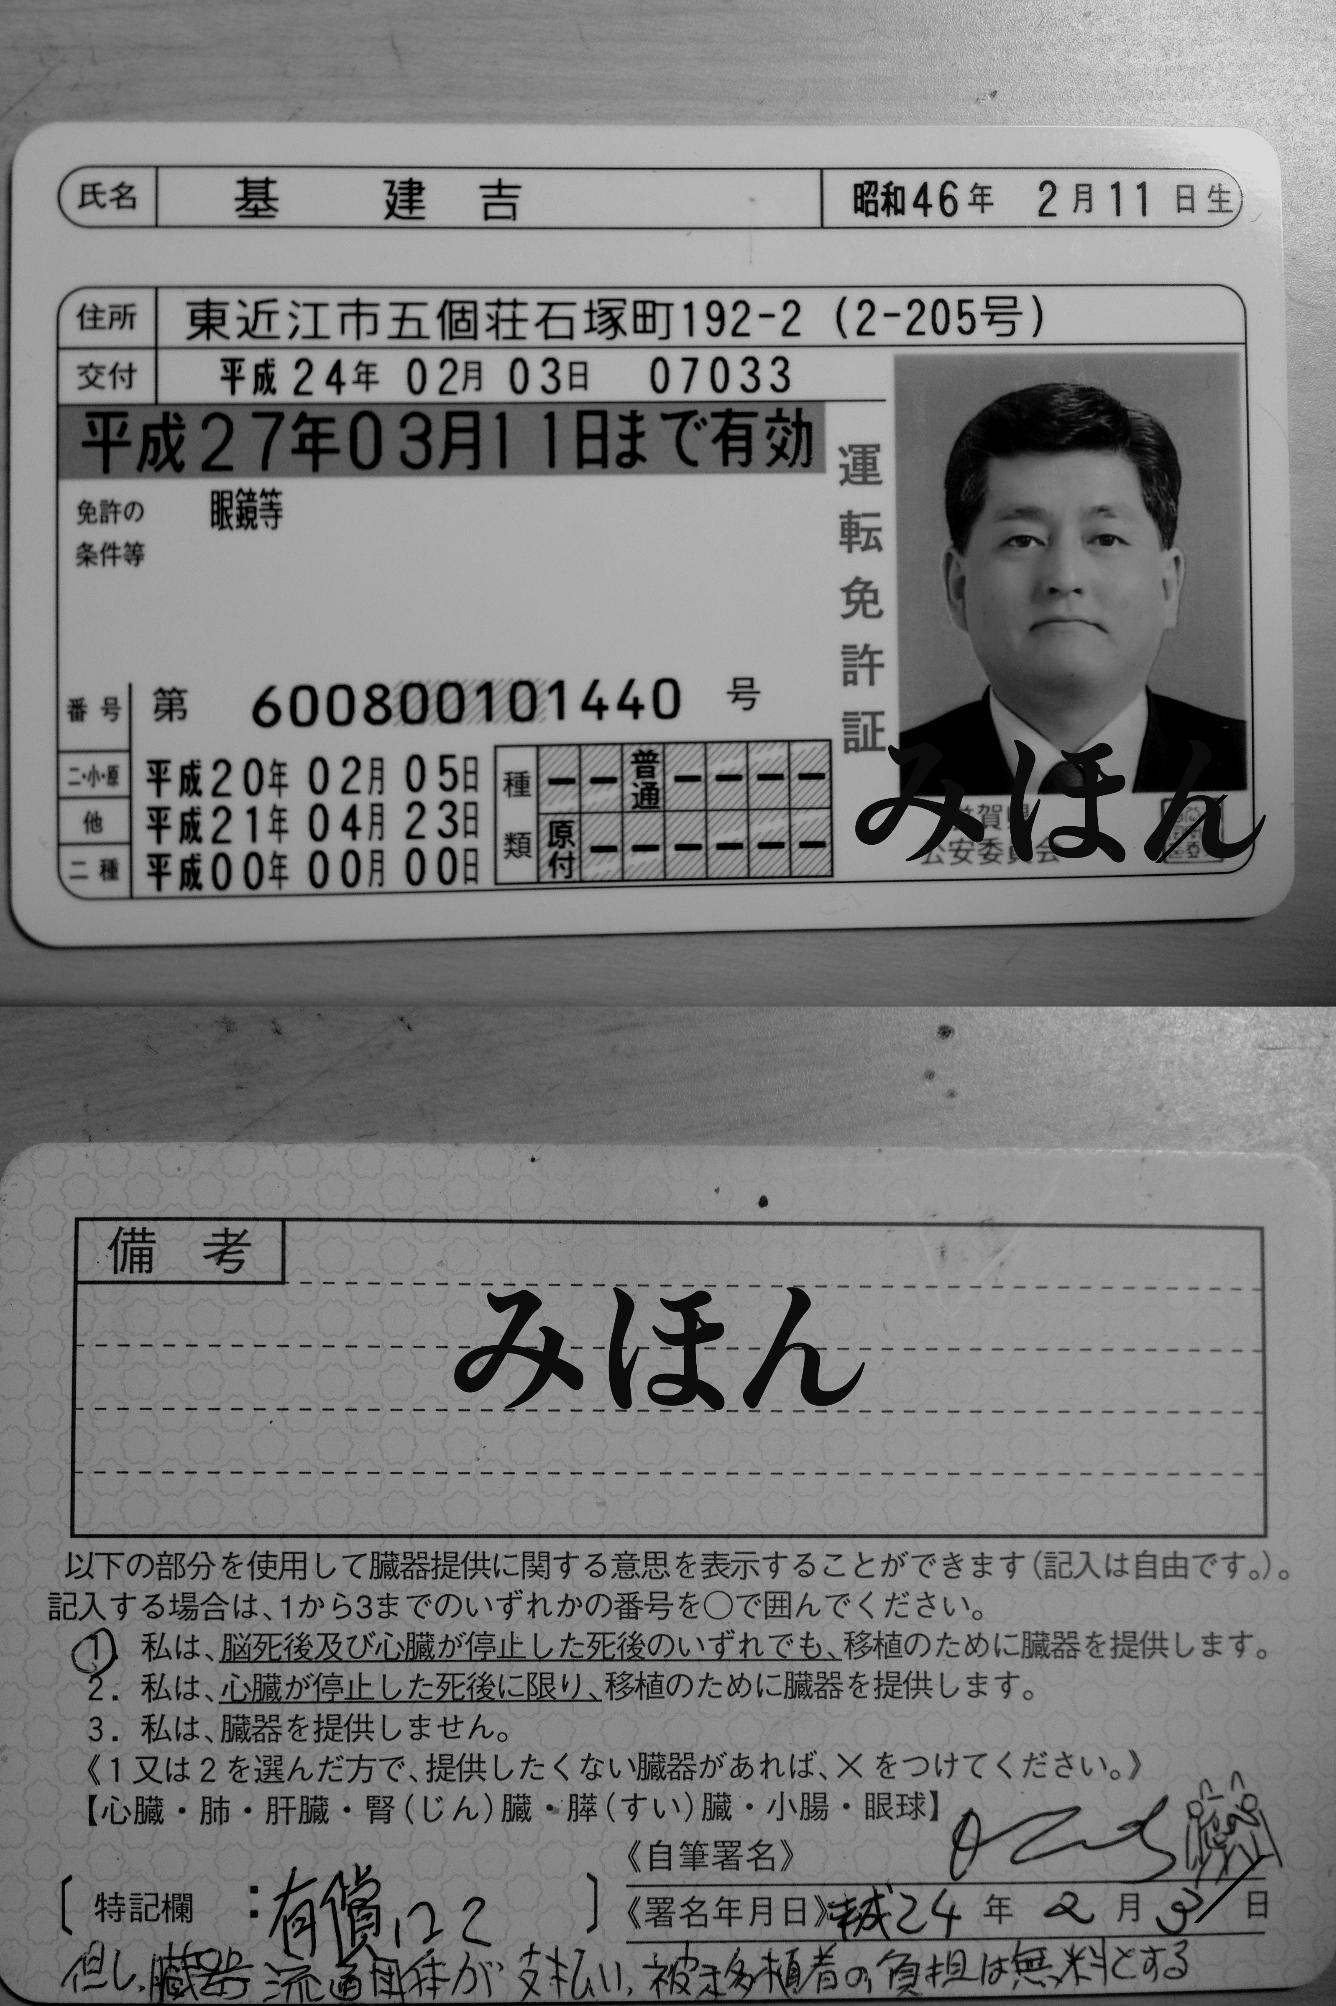 氏名 基 建吉 昭和46年 2月11日生
住所 東近江市五個荘石塚町192-2 (2-205号)
交付 平成24年 02月 03日 07033
平成27年03月11日まで有効
免許の 眼鏡等
条件等
運転免許証
番号 第 600800101440 号
二・小・原 平成20年 02月 05日
他 平成21年 04月 23日
二種 平成00年 00月 00日
種類
ーー普通ーーーー
原付ーーーーーー
公安委員会
みほん
備考
みほん
以下の部分を使用して臓器提供に関する意思を表示することができます(記入は自由です。)。
記入する場合は、1から3までのいずれかの番号を○で囲んでください。
1. 私は、脳死後及び心臓が停止した死後のいずれでも、移植のために臓器を提供します。
2. 私は、心臓が停止した死後に限り、移植のために臓器を提供します。
3. 私は、臓器を提供しません。
《1又は2を選んだ方で、提供したくない臓器があれば、×をつけてください。》
【心臓・肺・肝臓・腎(じん)臓・膵(すい)臓・小腸・眼球】
《自筆署名》
〔特記欄:有償にて〕
《署名年月日》平成24年 2月 3日
但し、臓器流通団体が支払い、被移植者の負担は無料とする